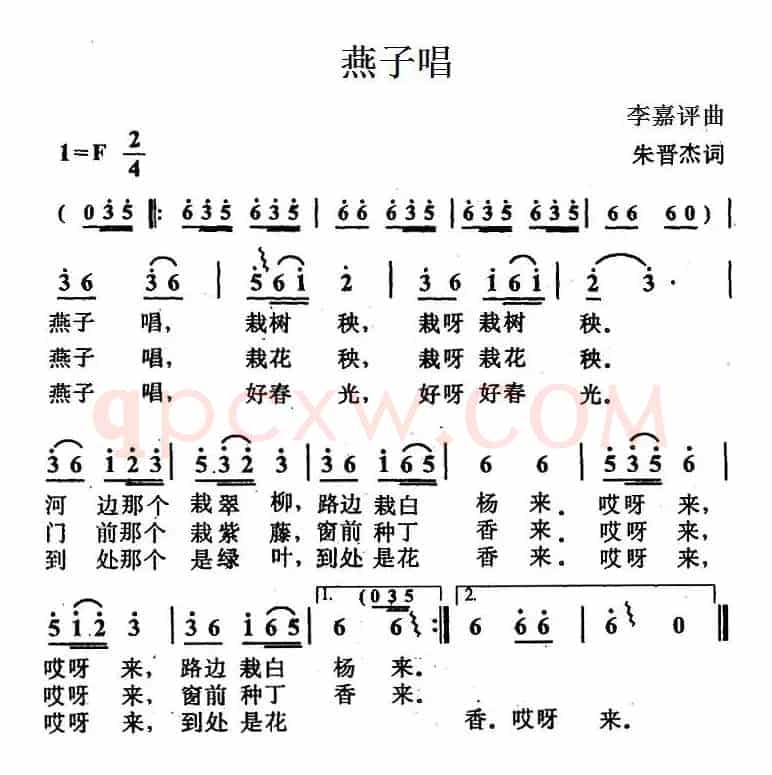 燕子唱
李嘉评曲
1=F 2/4
朱晋杰词
( 0 3 5 ‖: 6 3 5 6 3 5 | 6 6 6 3 5 | 6 3 5 6 3 5 | 6 6 6 0 ) |
3 6 3 6 | 5 6 1 2 | 3 6 1 6 1 | 2 3 · |
燕子 唱, 栽树 秧, 栽呀 栽树 秧.
燕子 唱, 栽花 秧, 栽呀 栽花 秧.
燕子 唱, 好春 光, 好呀 好春 光.
qpcxw.COM
3 6 1 2 3 | 5 3 2 3 | 3 6 1 6 5 | 6 6 | 5 3 5 6 |
河 边那个 栽翠 柳, 路边 栽白 杨 来. 哎呀 来,
门 前那个 栽紫 藤, 窗前 种丁 香 来. 哎呀 来,
到 处那个 是绿 叶, 到处 是花 香 来. 哎呀 来,
1. ( 0 3 5 2.
5 1 2 3 | 3 6 1 6 5 | 6 6 :‖ 6 6 6 | 6 0 ‖
哎呀 来, 路边 栽白 杨 来.
哎呀 来, 窗前 种丁 香 来.
哎呀 来, 到处 是花 香. 哎呀 来.